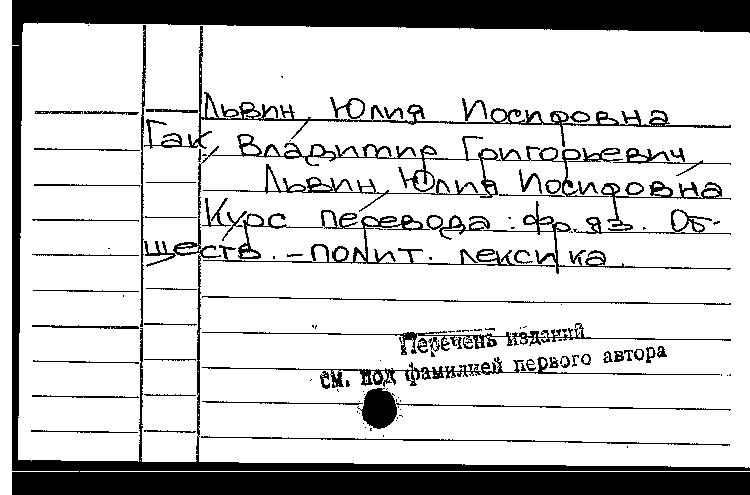 Львин, Юлия Иосифовна
Гак, Владимир Григорьевич,
Львин, Юлия Иосифовна
Курс перевода: фр. яз. Об-
ществ.-полит. лексика.
Перечень изданий
см. под фамилией первого автора